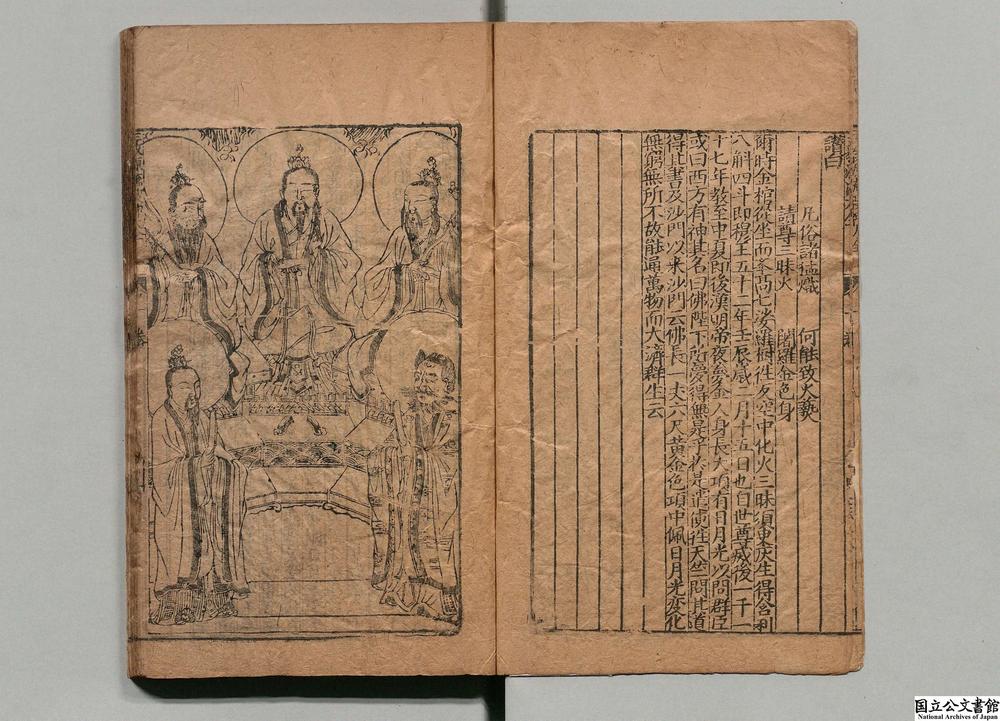 讚曰
凡俗諸猛熾　何能致火爇
請尊三昧火　闍維金色身
爾時金棺從坐而舉高七娑羅樹往反空中化火三昧須臾灰生得舍利
八斛四斗即穆王五十二年壬辰歲二月十五日也自世尊滅後一千一
十七年教至中夏即後漢明帝夜夢金人身長大項有日月光以問群臣
或曰西方有神其名曰佛陛下所夢得無是乎於是遣使往天竺問其道
得其書及沙門以來沙門云佛長一丈六尺黃金色項中佩日月光變化
無窮無所不故能通萬物而大濟群生云
国立公文書館
National Archives of Japan